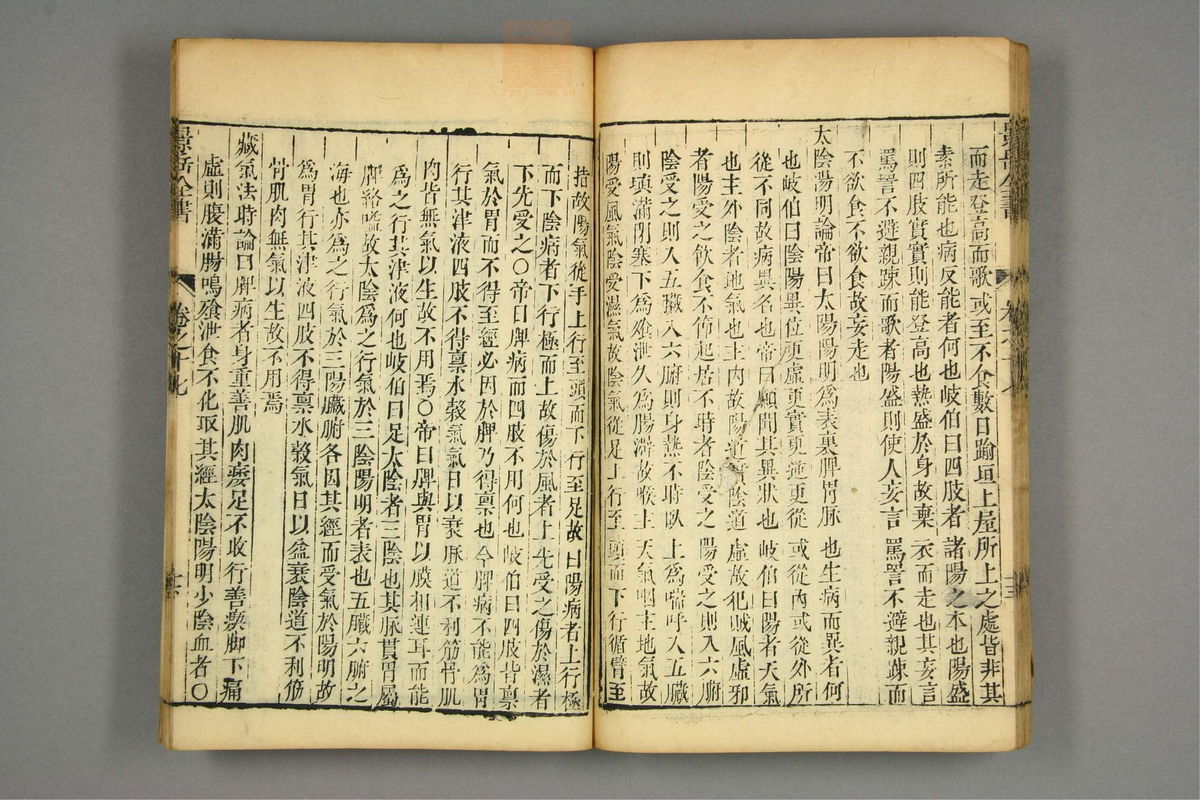 而走登高而歌或至不食數日踰垣上屋所上之處皆非其
素所能也病反能者何也岐伯曰四肢者諸陽之本也陽盛
則四肢實實則能登高也熱盛於身故棄衣而走也其妄言
罵詈不避親疎而歌者陽盛則使人妄言罵詈不避親疎而
不欲食不欲食故妄走也
太陰陽明論帝曰太陽陽明為表裏脾胃脉也生病而異者何
也岐伯曰陰陽異位更虛更實更逆更從或從內或從外所
從不同故病異名也帝曰願聞其異狀也岐伯曰陽者天氣
也主外陰者地氣也主內故陽道實陰道虛故犯賊風虛邪
者陽受之飲食不節起居不時者陰受之陽受之則入六腑
陰受之則入五臟入六腑則身熱不時臥上為喘呼入五臟
則䐜滿閉塞下為飱泄久為腸澼故喉主天氣咽主地氣故
陽受風氣陰受濕氣故陰氣從足上行至頭而下行循臂至
指故陽氣從手上行至頭而下行至足故曰陽病者上行極
而下陰病者下行極而上故傷於風者上先受之傷於濕者
下先受之〇帝曰脾病而四肢不用何也岐伯曰四肢皆禀
氣於胃而不得至經必因於脾乃得禀也今脾病不能為胃
行其津液四肢不得禀水榖氣氣日以衰脉道不利筋骨肌
肉皆無氣以生故不用焉〇帝曰脾與胃以膜相連耳而能
為之行其津液何也岐伯曰足太陰者三陰也其脉貫胃屬
脾絡嗌故太陰為之行氣於三陰陽明者表也五臟六腑之
海也亦為之行氣於三陽臟腑各因其經而受氣於陽明故
為胃行其津液四肢不得禀水榖氣日以益衰陰道不利筋
骨肌肉無氣以生故不用焉
藏氣法時論曰脾病者身重善肌肉痿足不收行善瘈脚下痛
虛則腹滿腸鳴飱泄食不化取其經太陰陽明少陰血者〇
景岳全書
卷之十七